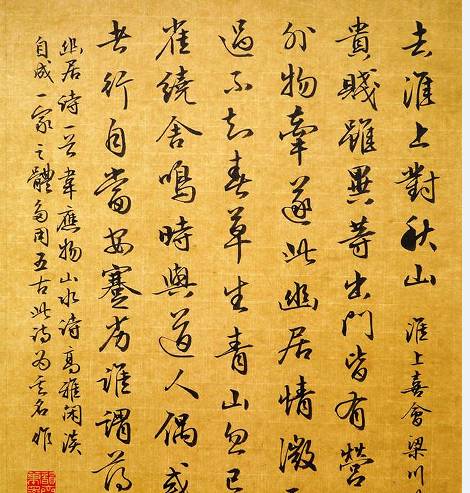 去淮上對秋山 淮上喜會梁川
貴賤雖異等出門皆有營
外物牽遂此幽居情微
過不知春草生青山忽已
雀繞舍鳴時與道人偶或
者行自當安蹇劣誰謂薄
幽居詩一首韋應物山水詩高雅閑淡
自成一家之體多用五古此詩為其名作